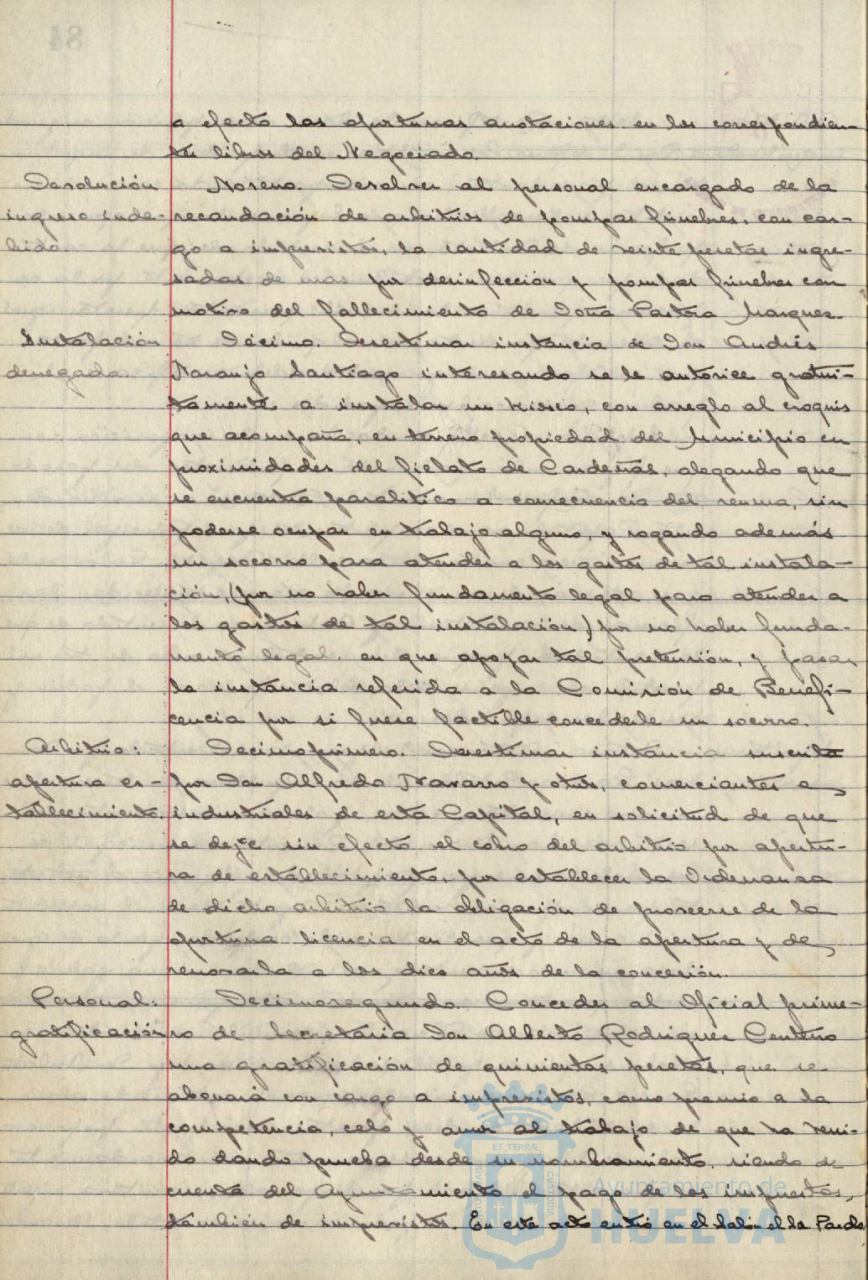 a efecto las oportunas anotaciones en los correspondien-
tes libros del Negociado.
Devolución
ingreso inde-
bido.
Noveno. Devolver al personal encargado de la
recaudación de arbitrios de pompas fúnebres, con car-
go a imprevistos, la cantidad de veinte pesetas ingre-
sadas de mas por desinfección y pompas fúnebres con
motivo del fallecimiento de Doña Pastora Marquez.
Instalación
denegada.
Décimo. Desestimar instancia de Don Andrés
Naranjo Santiago interesando se le autorice gratui-
tamente a instalar un kiosco, con arreglo al croquis
que acompaña, en terreno propiedad del Municipio en
proximidades del fielato de Cardeñas, alegando que
se encuentra paralitico a consecuencia del reuma, sin
poderse ocupar en trabajo alguno, y rogando además
un socorro para atender a los gastos de tal instala-
ción, (por no haber fundamento legal para atender a
los gastos de tal instalación) por no haber funda-
mento legal en que apoyar tal pretensión, y pasar
la instancia referida a la Comisión de Benefi-
cencia por si fuese factible concederle un socorro.
Arbitrio:
apertura es-
tablecimiento.
Decimoprimero. Desestimar instancia suscrita
por Don Alfredo Navarro y otros, comerciantes e
industriales de esta Capital, en solicitud de que
se deje sin efecto el cobro del arbitrio por apertu-
ra de establecimiento, por establecer la Ordenanza
de dicho arbitrio la obligación de proveerse de la
oportuna licencia en el acto de la apertura y de
renovarla a los diez años de la concesión.
Personal:
gratificación
Decimosegundo. Conceder al Oficial prime-
ro de Secretaria Don Alberto Rodriguez Centeno
una gratificación de quinientas pesetas, que se
abonará con cargo a imprevistos, como premio a la
competencia, celo y amor al trabajo de que ha veni-
do dando prueba desde su nombramiento, siendo de
cuenta del Ayuntamiento el pago de los impuestos,
también de imprevistos. En este acto entró en el Salón el Sr. Parda
Ayuntamiento de
HUELVA